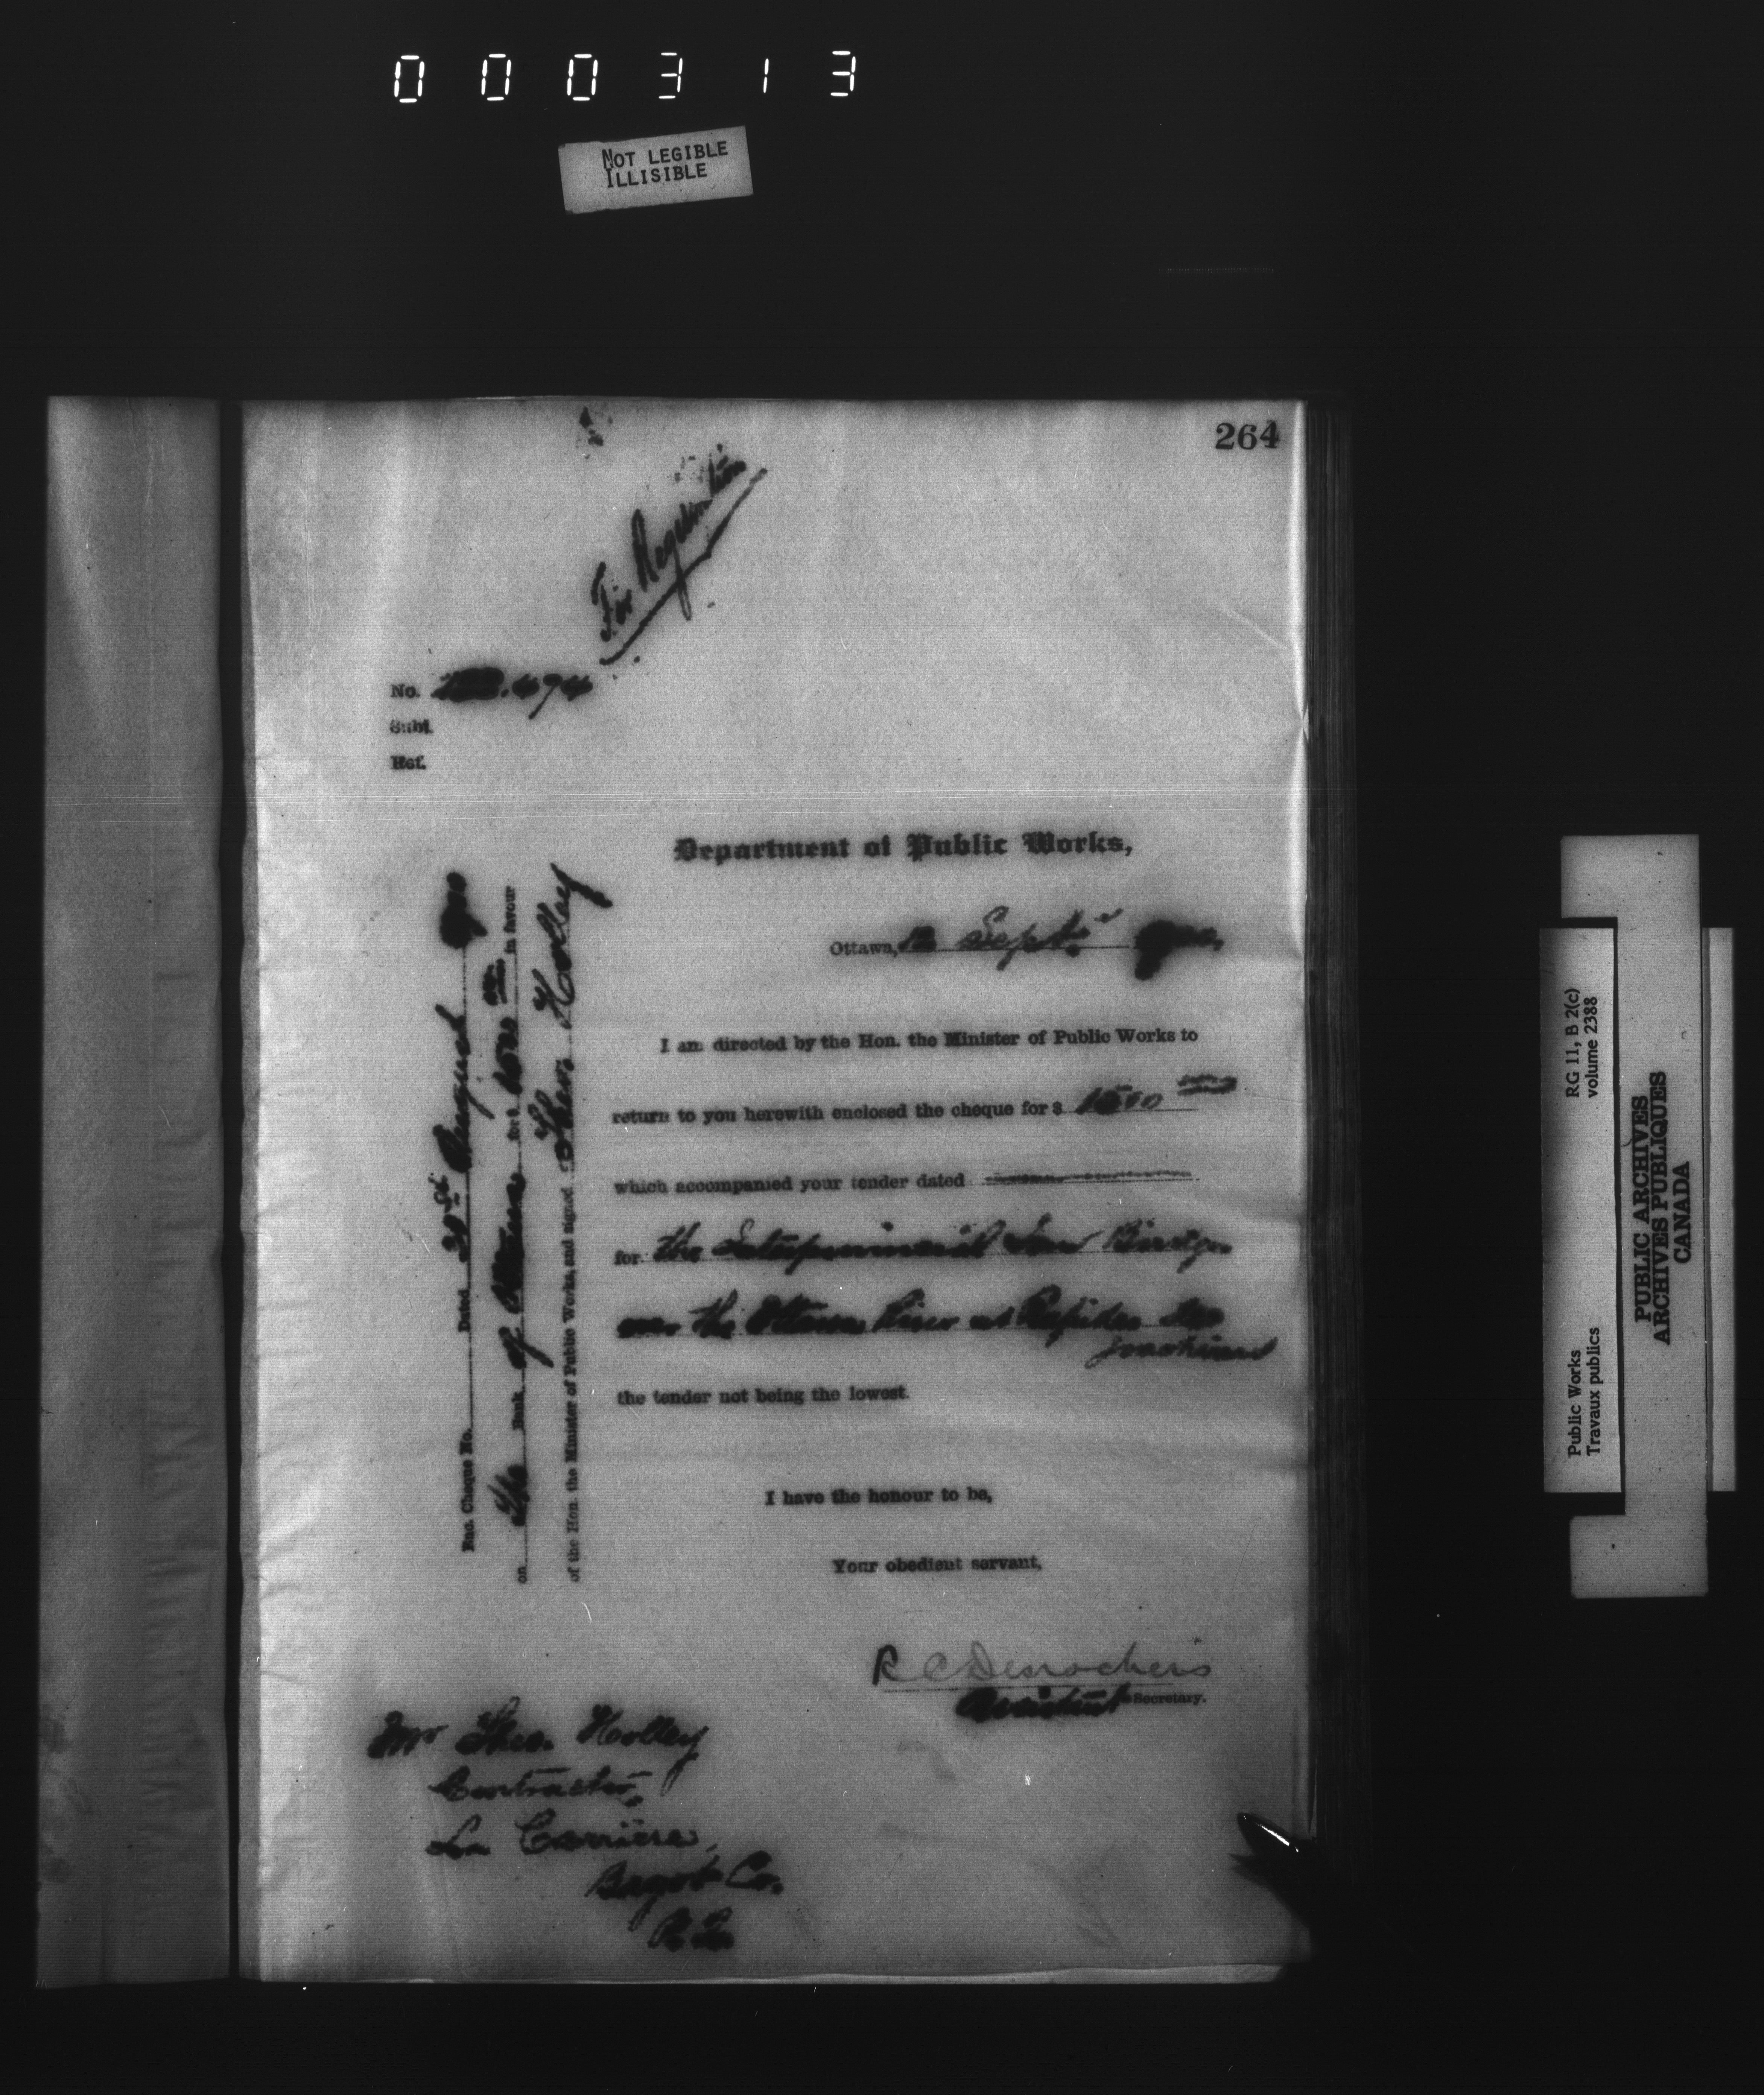 000313
NOT LEGIBLE
ILLISIBLE
264
For Registration
No. 474
Subt.
Ref.
Department of Public Works,
Ottawa, 12 Sept.
I am directed by the Hon. the Minister of Public Works to
return to you herewith enclosed the cheque for $ 1500
which accompanied your tender dated
for the Interprovincial Iron Bridge
over the Ottawa River at Rapides des
Joachims
the tender not being the lowest.
I have the honour to be,
Your obedient servant,
R C Desrochers
Assistant Secretary.
Enc. Cheque No. Dated 31st August
on the Bank of Ottawa for $ 1500 in favour
of the Hon. the Minister of Public Works, and signed Theo. Holley
Mr Theo. Holley
Contractor,
La Carriere,
Bagot Co.
P.Q.
Public Works
Travaux publics
RG 11, B 2(c)
volume 2388
PUBLIC ARCHIVES
ARCHIVES PUBLIQUES
CANADA